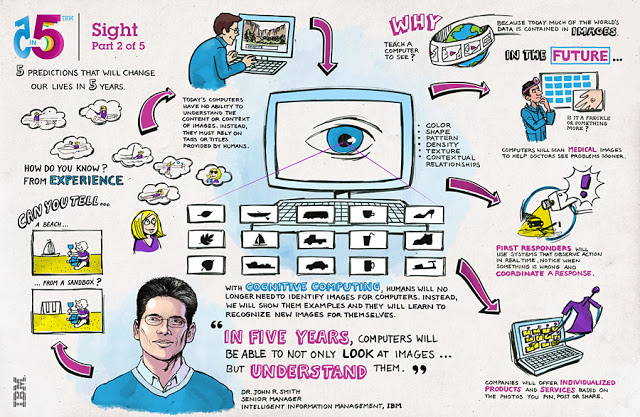 5 IN 5 IBM
Sight
Part 2 of 5
5 PREDICTIONS THAT WILL CHANGE
OUR LIVES IN 5 YEARS.
HOW DO YOU KNOW?
FROM EXPERIENCE
CAN YOU TELL...
A BEACH...
...FROM A SANDBOX?
TODAY'S COMPUTERS
HAVE NO ABILITY TO
UNDERSTAND THE
CONTENT OR CONTEXT
OF IMAGES. INSTEAD,
THEY MUST RELY ON
TAGS OR TITLES
PROVIDED BY HUMANS.
COLOR
SHAPE
PATTERN
DENSITY
TEXTURE
CONTEXTUAL
RELATIONSHIPS
WITH COGNITIVE COMPUTING, HUMANS WILL NO
LONGER NEED TO IDENTIFY IMAGES FOR COMPUTERS. INSTEAD,
WE WILL SHOW THEM EXAMPLES AND THEY WILL LEARN TO
RECOGNIZE NEW IMAGES FOR THEMSELVES.
“IN FIVE YEARS, COMPUTERS WILL
BE ABLE TO NOT ONLY LOOK AT IMAGES...
BUT UNDERSTAND THEM.”
DR. JOHN R. SMITH
SENIOR MANAGER
INTELLIGENT INFORMATION MANAGEMENT, IBM
WHY
TEACH A
COMPUTER
TO SEE?
BECAUSE TODAY MUCH OF THE WORLD'S
DATA IS CONTAINED IN IMAGES.
IN THE FUTURE...
IS IT A FRECKLE
OR SOMETHING
MORE?
COMPUTERS WILL SCAN MEDICAL IMAGES
TO HELP DOCTORS SEE PROBLEMS SOONER.
FIRST RESPONDERS WILL
USE SYSTEMS THAT OBSERVE ACTION
IN REAL TIME, NOTICE WHEN
SOMETHING IS WRONG AND
COORDINATE A RESPONSE.
COMPANIES WILL OFFER INDIVIDUALIZED
PRODUCTS AND SERVICES BASED ON
THE PHOTOS YOU PIN, POST OR SHARE.
IBM